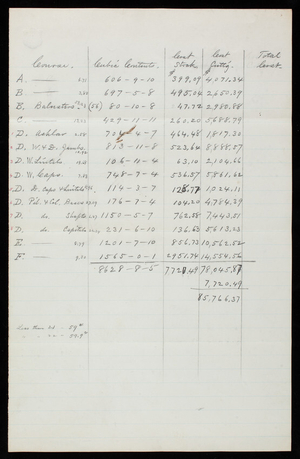 Course. Cubic Contents. Cost Stock. Cost Cutting. Total Cost.
A. 606-9-10 $399.09 $4,071.34
B 697-5-8 495.04 2,650.39
B. Balusters (56) 80-10-8 47.72 2,980.88
C 429-11-11 260.20 5,688.79
D. Ashlar 704-4-7 464.48 1,817.30
D. W. & D. Jambs 813-11-8 523.64 8,888.07
D. W. Lintels 106-11-4 63.10 2,104.66
D. W. Caps. 748-7-4 536.57 5,861.62
D. D. Caps & Lintels 114-3-7 128.77 1,024.11
D. Pil. & Col. Bases 176-7-4 104.20 4,784.39
D. do. Shafts 1150-5-7 762.58 7,443.51
D. do. Capitals 231-6-10 136.63 5,613.23
E 1201-7-10 856.73 10,562.52
F 1565-0-1 2951.74 14,554.56
8628-8-5 7720.49 78,045.87
7,720.49
85,766.37